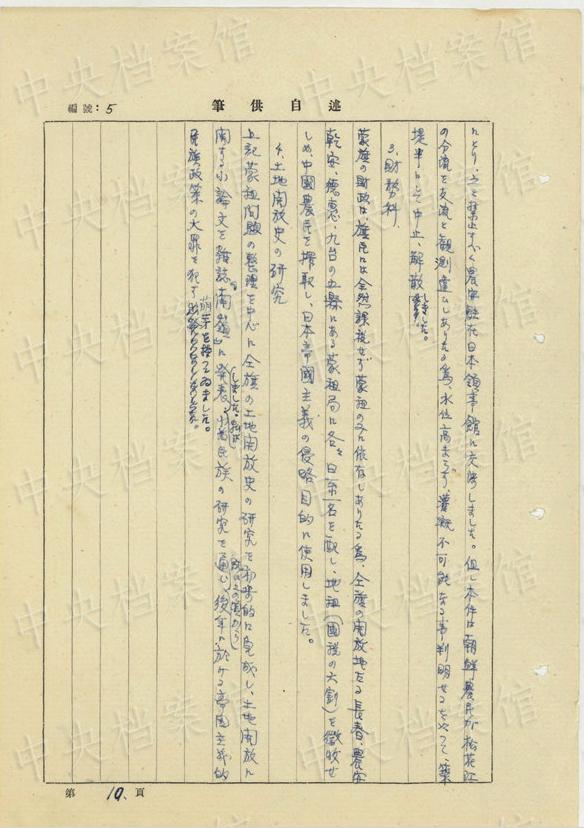 編號：5
筆供自述
にとり、之を禁止すべく農安駐在日本領事館に交渉しました。但し本件は朝鮮農民が松花江
の分流を支流と観測違ひしありたる為、水位高まらず、灌漑不可能なる事判明せるを以て、築
堤半にして中止、解散しました。
3. 財務科
蒙旗の財政は、旗民には全然課税せず蒙租のみに依存しありたる為、全旗の開放地たる長春、農安
乾安、徳惠、九台の五縣にある蒙租局に各々日系一名を配し、地租（国税の六割）を徴收せ
しめ、中國農民を搾取し、日本帝國主義の侵略目的に使用しました。
4. 土地開放史の研究
上記蒙租問題の整理を中心に全旗の土地開放史の研究を初歩的に完成し、土地開放に
関する小論文を雑誌に発表しました。私は此の頃から少数民族の研究を通じ、後年に於ける帝国主義的
民族政策の大罪を犯す萌芽を持つてゐました。
第 10. 頁
中央档案馆